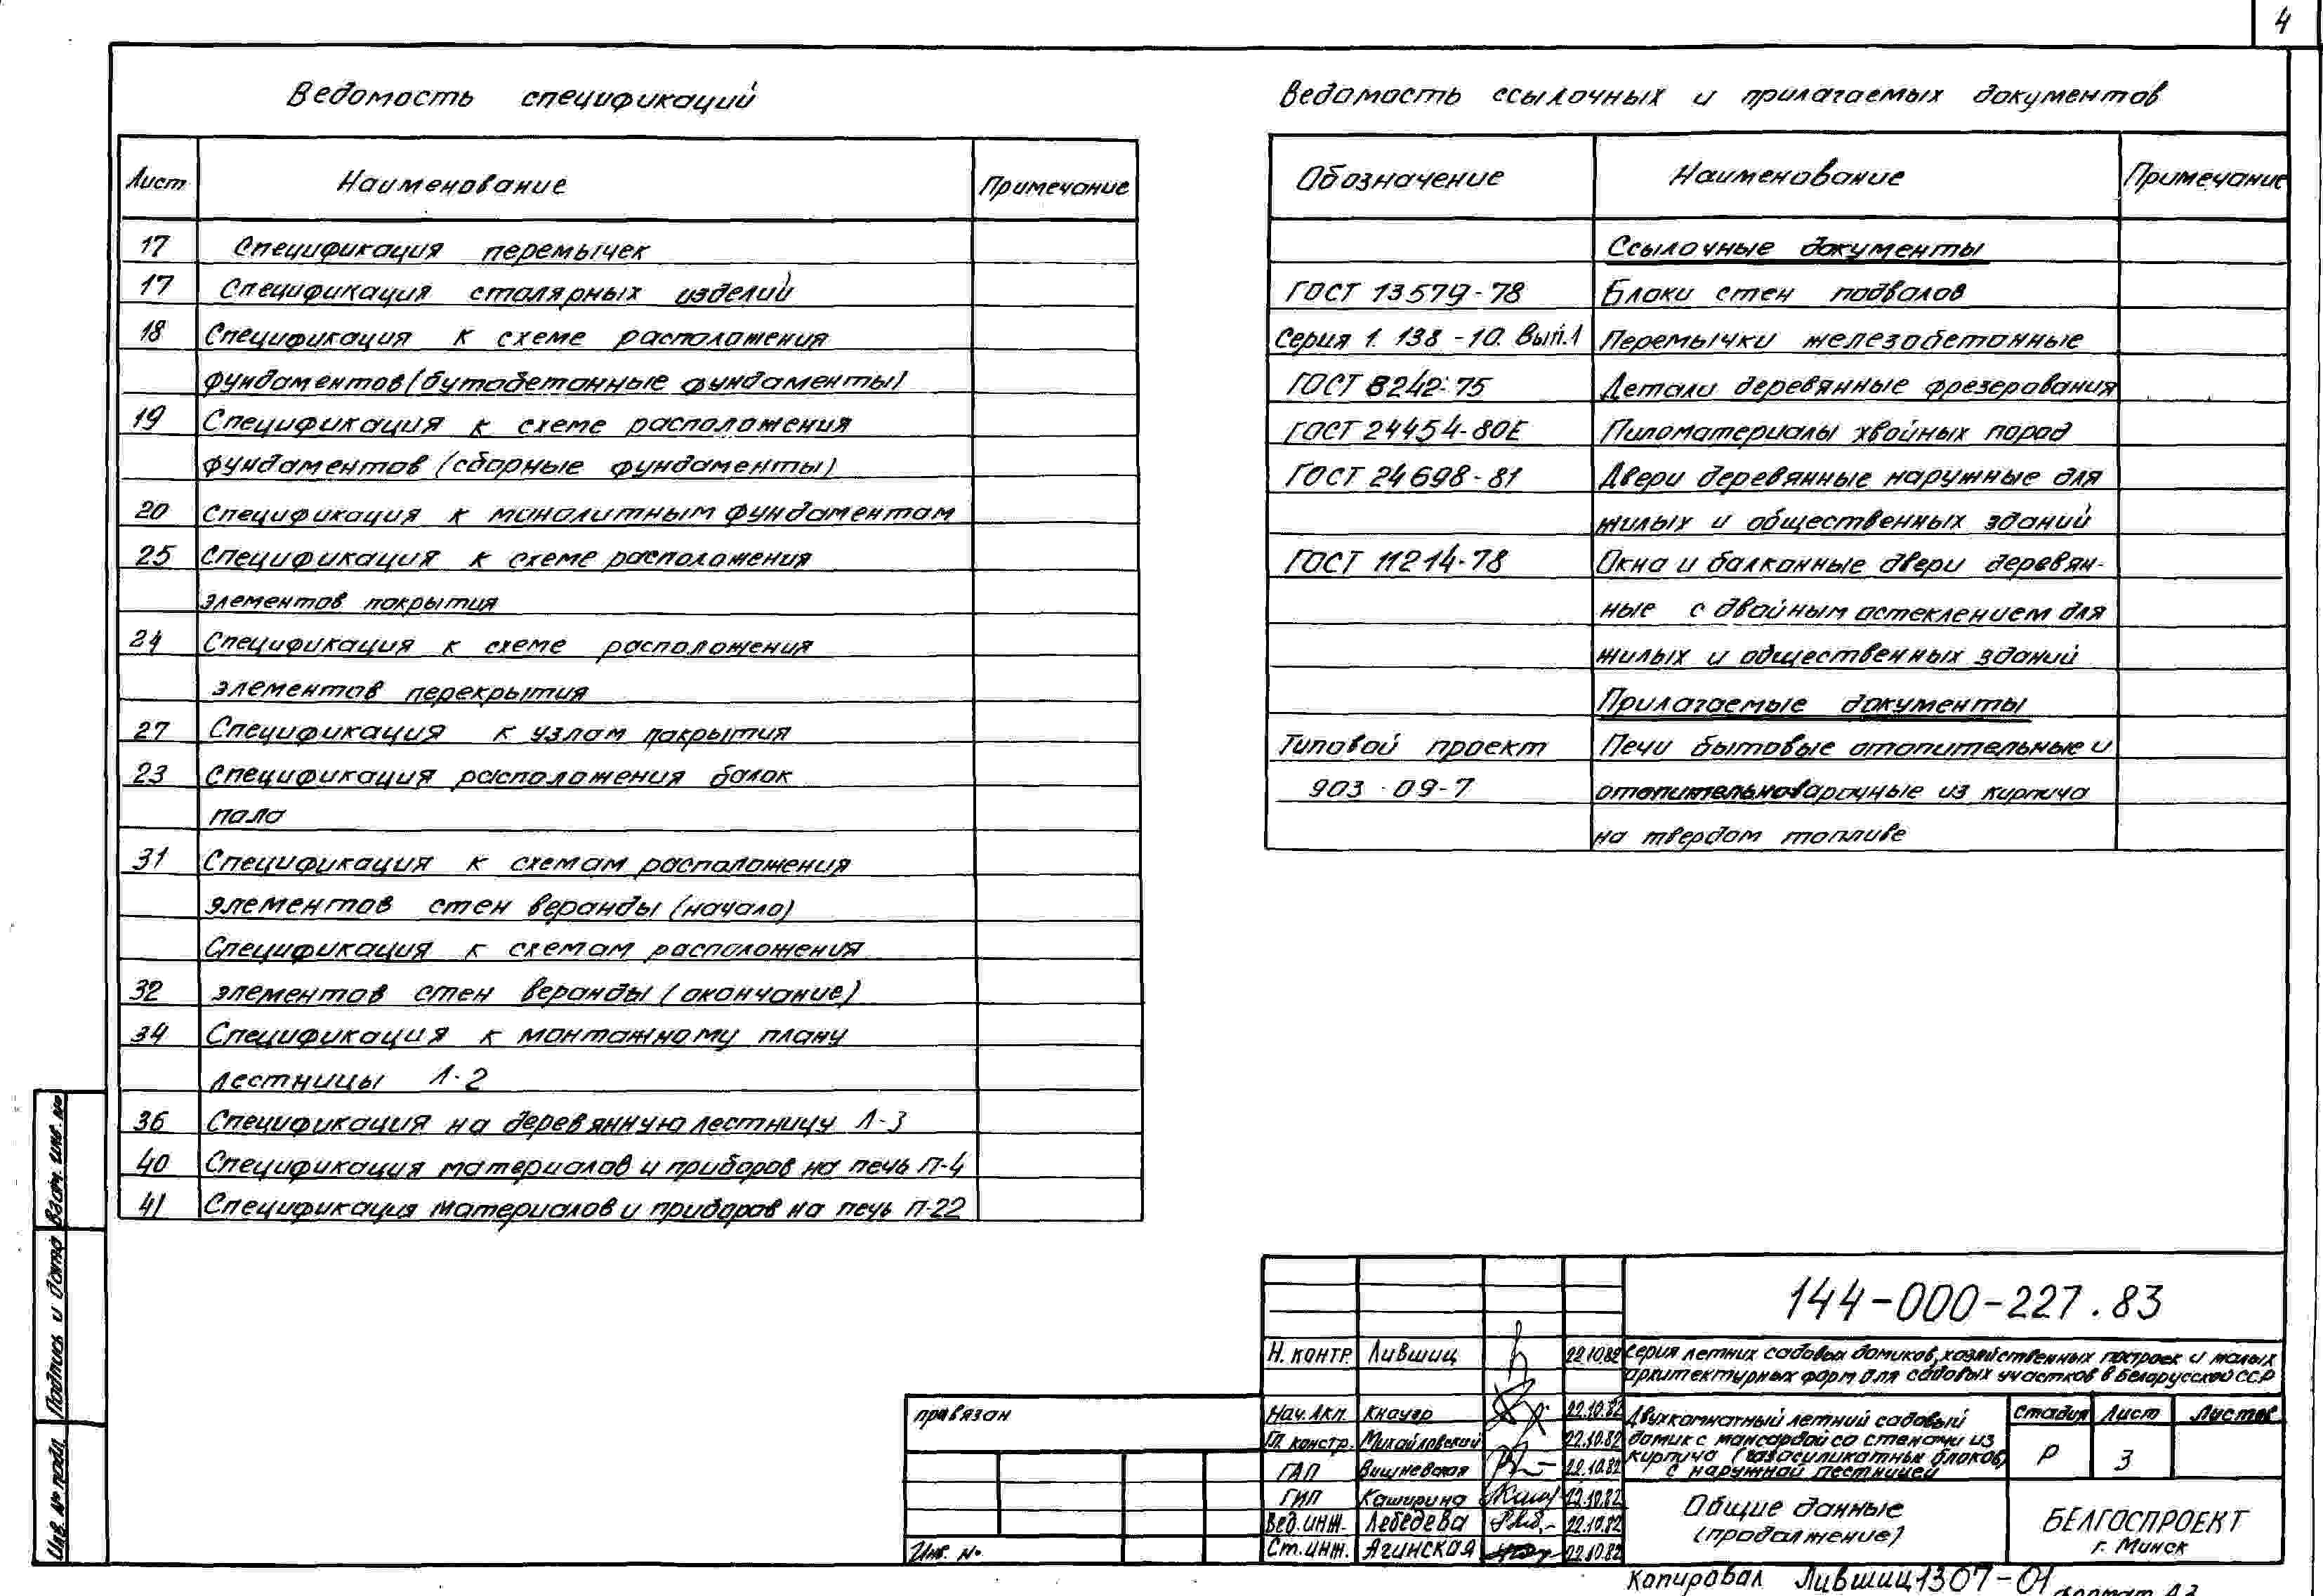 4
Ведомость спецификаций
Лист Наименование Примечание
17 Спецификация перемычек
17 Спецификация столярных изделий
18 Спецификация к схеме расположения
фундаментов (бутобетонные фундаменты)
19 Спецификация к схеме расположения
фундаментов (сборные фундаменты)
20 Спецификация к монолитным фундаментам
25 Спецификация к схеме расположения
элементов покрытия
24 Спецификация к схеме расположения
элементов перекрытия
27 Спецификация к узлам покрытия
23 Спецификация расположения балок
пола
31 Спецификация к схемам расположения
элементов стен веранды (начало)
Спецификация к схемам расположения
32 элементов стен веранды (окончание)
34 Спецификация к монтажному плану
лестницы Л-2
36 Спецификация на деревянную лестницу Л-3
40 Спецификация материалов и приборов на печь П-4
41 Спецификация материалов и приборов на печь П-22
Ведомость ссылочных и прилагаемых документов
Обозначение Наименование Примечание
Ссылочные документы
ГОСТ 13579-78 Блоки стен подвалов
Серия 1.138-10. Вып.1 Перемычки железобетонные
ГОСТ 8242-75 Детали деревянные фрезерования
ГОСТ 24454-80Е Пиломатериалы хвойных пород
ГОСТ 24698-81 Двери деревянные наружные для
жилых и общественных зданий
ГОСТ 11214-78 Окна и балконные двери деревян-
ные с двойным остеклением для
жилых и общественных зданий
Прилагаемые документы
Типовой проект Печи бытовые отопительные и
903-09-7 отопительноварочные из кирпича
на твердом топливе
Взам. инв. №
Подпись и дата
Инв. № подл.
привязан
Инв. №
144-000-227.83
Н. контр. Лившиц 22.10.82
Серия летних садовых домиков, хозяйственных построек и малых
архитектурных форм для садовых участков в Белорусской ССР
Нач. Акп. Кнаугр 22.10.82
Гл. констр. Михайловский 22.10.82
ГАП Вишневская 22.10.82
ГИП Каширина 22.10.82
Вед. инж. Лебедева 22.10.82
Ст. инж. Агинская 22.10.82
Двухкомнатный летний садовый
домик с мансардой со стенами из
кирпича (газосиликатных блоков)
с наружной лестницей
Стадия Лист Листов
Р 3
Общие данные
(продолжение)
БЕЛГОСПРОЕКТ
г. Минск
Копировал Лившиц 1307-01
Формат А3